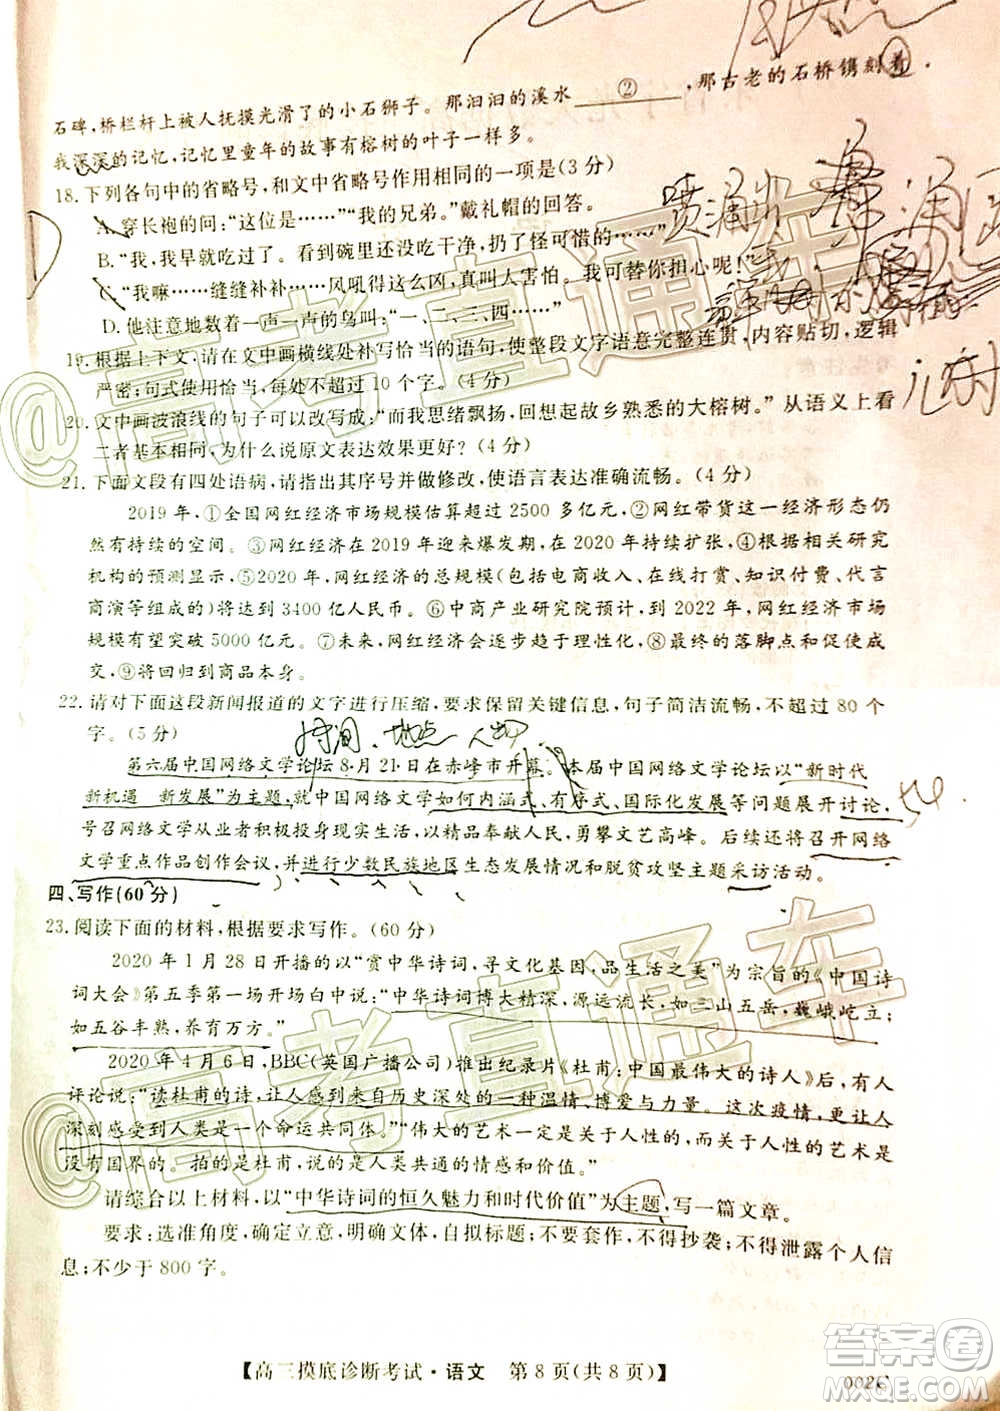 石碑,桥栏杆上被人抚摸光滑了的小石狮子。那汩汩的溪水②,那古老的石桥镌刻着
我深深的记忆,记忆里童年的故事有榕树的叶子一样多。
18.下列各句中的省略号,和文中省略号作用相同的一项是(3分)
A.穿长袍的问:“这位是……”“我的兄弟。”戴礼帽的回答。
B.“我,我是没有吃过……。看到碗里还没吃干净,扔了怪可惜的……”
C.“我嘛……缝缝补补……风吼得这么凶,真叫人害怕。我可替你担心呢!”
D.他注意地数着一声一声的鸟叫:“一、二、三、四……”
19.根据上下文,请在文中画横线处补写恰当的语句,使整段文字语意完整连贯,内容贴切,逻辑
严密;句式使用恰当,每处不超过10个字。(4分)
20.文中画波浪线的句子可以改写成:“而我思绪飘扬,回想起故乡熟悉的大榕树。”从语义上看
二者基本相同,为什么说原文表达效果更好?(4分)
21.下面文段有四处语病,请指出其序号并做修改,使语言表达准确流畅。(4分)
2019年,①全国网红经济市场规模估算超过2500多亿元,②网红带货这一经济形态
所有持续的空间。③网红经济在2019年迎来爆发期,在2020年持续扩张,④相关研究
机构的预测显示,⑤2020年,网红经济的总规模(包括电商收入、在线打赏、知识付费、代言
商演等组成的)将达到3400亿人民币。⑥中商产业研究院预计,到2022年,网红经济市场
规模有望突破5000亿元。⑦未来,网红经济会逐步趋于理性化,⑧最终的落脚点和促使成
交,⑨将回归到商品本身。
22.请对下面这段新闻报道的文字进行压缩,要求保留关键信息,句子简洁流畅,不超过80个
字。(5分)
时间、地点 人物
第六届中国网络文学论坛8月21日在赤峰市开幕。本届中国网络文学论坛以“新时代
新机遇 新发展”为主题,就中国网络文学如何内涵式、有序式、国际化发展等问题展开讨论,
号召网络文学从业者积极投身现实生活,以精品奉献人民,勇攀文艺高峰。后续还将召开网络
文学重点作品创作会议,并进行少数民族地区生态发展情况和脱贫攻坚主题采访活动。
四、写作(60分)
23.阅读下面的材料,根据要求写作。(60分)
2020年1月28日开播的以“赏中华诗词,寻文化基因,品生活之美”为宗旨的《中国诗
词大会》第五季第一场开场白中说:“中华诗词博大精深,源远流长,如三山五岳,巍峨屹立;
如五谷丰熟,养育万方。”
2020年4月6日,BBC(英国广播公司)推出纪录片《杜甫:中国最伟大的诗人》后,有人
评论说:“读杜甫的诗,让人感到来自历史深处的一种温情、博爱与力量。这次疫情,更让人
深刻感受到人类是一个命运共同体。”“伟大的艺术一定是关于人性的,而关于人性的艺术是
没有国界的。拍的是杜甫,说的是人类共通的情感和价值。”
请综合以上材料,以“中华诗词的恒久魅力和时代价值”为主题,写一篇文章。
要求:选准角度,确定立意,明确文体,自拟标题;不要套作,不得抄袭;不得泄露个人信
息;不少于800字。
【高三摸底诊断考试·语文 第8页(共8页)】
002C
@高考直通车
@高考直通车